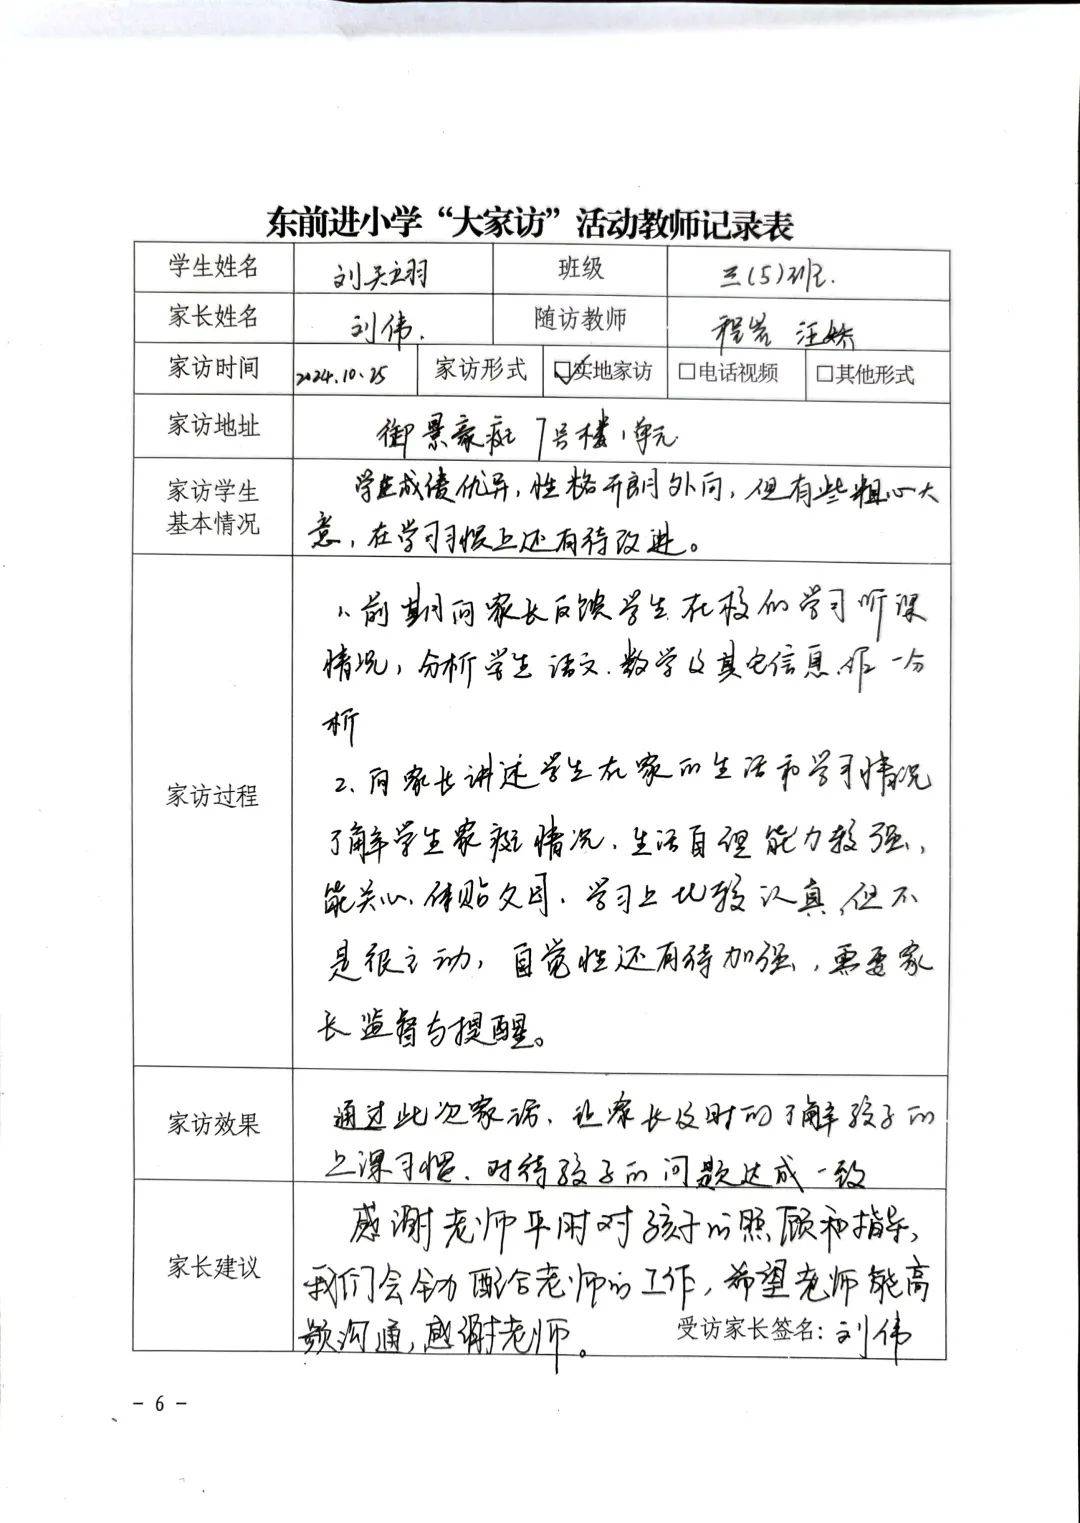 东前进小学“大家访”活动教师记录表
学生姓名 刘天翊 班级 三(5)班.
家长姓名 刘伟. 随访教师 程岩 汪娇
家访时间 2024.10.25 家访形式 ☑实地家访 □电话视频 □其他形式
家访地址 御景豪庭 7号楼1单元
家访学生基本情况
学生成绩优异,性格开朗外向,但有些粗心大
意,在学习习惯上还有待改进。
家访过程
1、前期向家长反馈学生在校的学习听课
情况,分析学生语文、数学及其它信息,作一分
析
2、向家长讲述学生在家的生活和学习情况
了解学生家庭情况、生活自理能力较强,
能关心、体贴父母、学习上比较认真,但不
是很主动,自觉性还有待加强,需要家
长监督与提醒。
家访效果
通过此次家访、让家长及时的了解孩子的
上课习惯、对待孩子的问题达成一致
家长建议
感谢老师平时对孩子的照顾和指导,
我们会全力配合老师的工作,希望老师能高
频沟通,感谢老师。 受访家长签名:刘伟
- 6 -